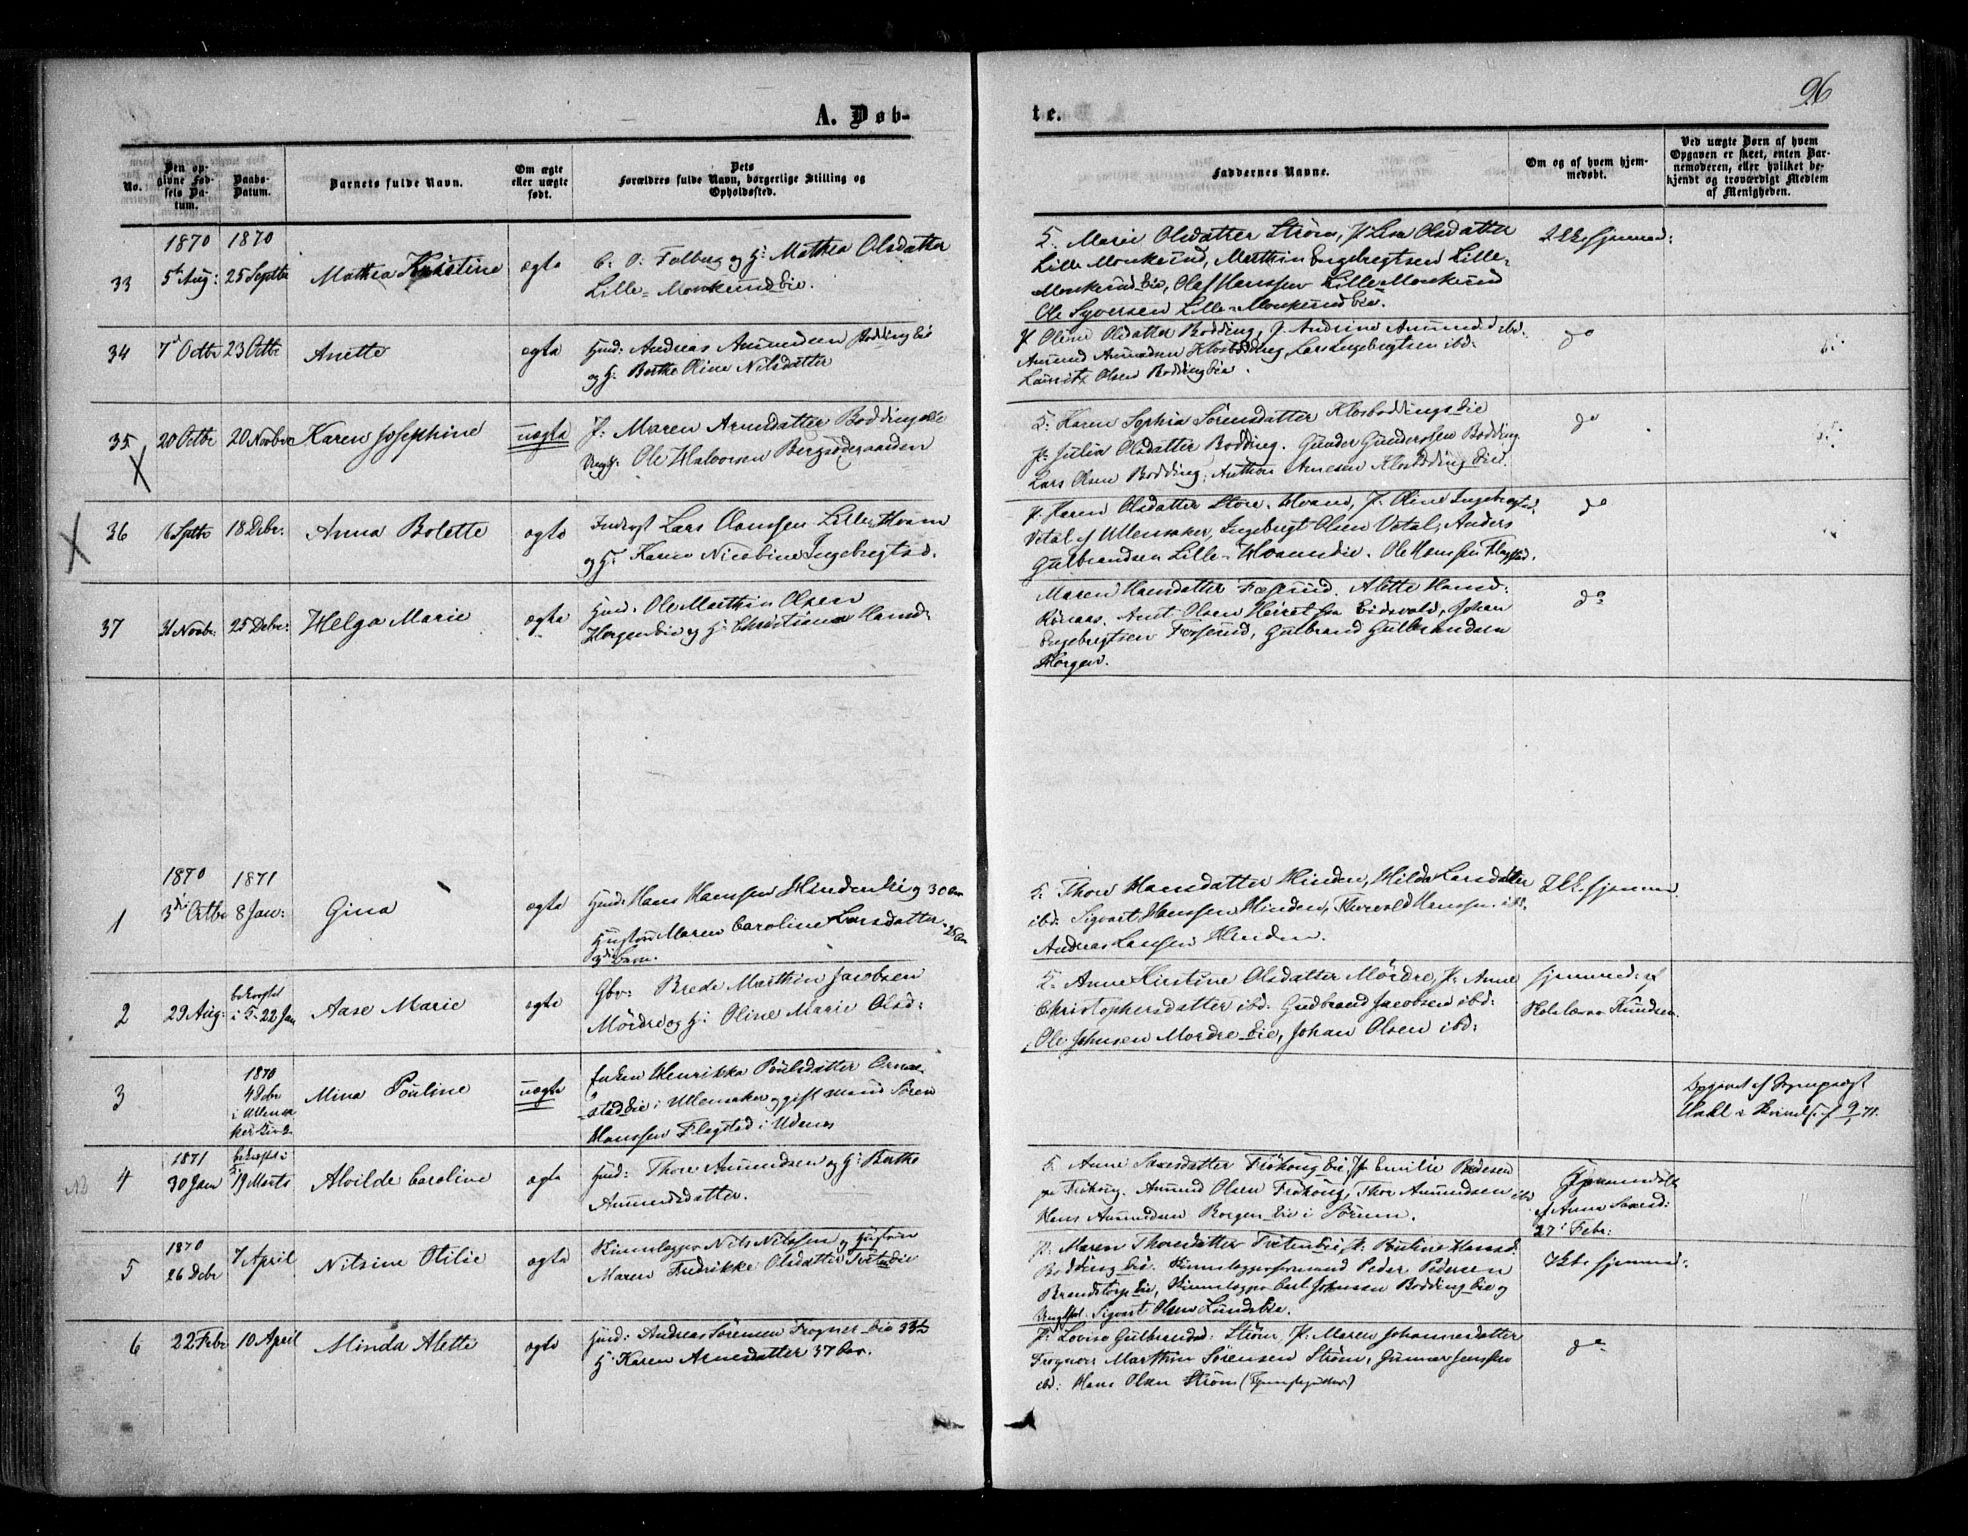 96
A. Døb-
te.
No.
Den op-
givne Fød-
sels Da-
tum.
Daabs-
Datum.
Barnets fulde Navn.
Om ægte
eller uægte
født.
Dets
Forældres fulde Navn, borgerlige Stilling og
Opholdssted.
Faddernes Navne.
Om og af hvem hjem-
medøbt.
Ved uægte Børn af hvem
Opgaven er skeet, enten Bar-
nemoderen, eller hvilket be-
kjendt og troværdigt Medlem
af Menigheden.
33
1870
5te Aug:
1870
25 Septbr
Mathea Kristine
ægte
C. O. Falberg og H: Mathea Olsdatter
Lille-Monkerud Eie.
F. Marie Olsdatter Strøm, P. Lisa Olsdatter
Lille Monkerud, Marthin Engebregtsen Lille-
Monkerud Eie, Olaf Hanssen Lille Monkerud
Ole Syversen Lille-Monkerud Eie.
Ikke hjemmed:
34
7d Octbr
23 Octbr
Anette
ægte
Husd: Andreas Amundsen Bodding Eie
og H: Berthe Oline Nilsdatter
P. Oline Olsdatter Bodding, P. Andrine Amundsd ibd.
Amund Amundsen Klosbodding, Lars Engebregtsen ibd:
Lauritz Olsen Bodding Eie.
do
35
20 Octbr
20 Novbr
Karen Josephine
uægte
P: Maren Arnesdatter Bodding Eie
Ungk: Ole Halvorsen Bergsødegaarden
F: Karen Sophia Sørensdatter Klosboddings Eie
P: Julia Olsdatter Bodding. Gunder Gundersen Bodding
Lars Olsen Bodding, Anthon Arnesen Klosbodding Eie.
do
36
6 Septbr
18 Debr.
Anna Bolette
ægte
Inderst Lars Hanssen Lille-Hvam
og H: Karen Nicobine Ingebregtsd.
P. Karen Olsdatter Store-Hvam, P. Oline Ingebregtsd.
Votal af Ullensaker, Ingebregt Olsen Votal, Anders
Gulbrandsen Lille-Hvam Eie. Ole Hanssen Flagstad.
do
37
Novbr:
25 Debr:
Helga Marie
ægte
Husd. Ole Marthin Olsen
Horgen Eie og H: Christiane Hansd:
Maren Hansdatter Fosserud. Alette Hansd:
Rønaas. Anit Olsen Heiret fra Eidsvold, Johan
Engebregtsen Fosserud, Gulbrand Gulbrandsen
Horgen.
do
1
1870
3die Octbr
1871
8 Jan:
Gina
ægte
Husd: Hans Hanssen Hinden Eie 30 Aar
Hustru Maren Caroline Larsdatter 28 Aar
3die Barn.
F. Thore Hansdatter Hinden, Hilda Larsdatter
ibd: Sigvart Hanssen Hinden, Thorvald Hanssen ibd.
Andreas Larsen Hinden.
Ikke hjemmed
2
29 Aug:
bekræftet
i F. 22 Jan
Aase Marie
ægte
Gbr: Brede Marthin Jacobsen
Mørdre og H: Oline Marie Olsd:
F. Anne Kirstine Olsdatter Mørdre, P. Anne
Christophersdatter ibd. Gudbrand Jacobsen ibd:
Ole Johnsen Mordre Eie, Johan Olsen ibd:
hjemmed: af
Skolelærer Knudsen.
3
1870
4 Debr
i Ullensa
ker Kirke
Mina Pouline
uægte
Enken Henrikka Poulsdatter Ornæ-
stad Eie i Ullensaker og gift Mand Søren
Hanssen Flagstad i Udenes
Opgivet af Sognepræst
4
1871
30 Jan
bekræftet i
F. 19 Marts
Alvilde Caroline
ægte
Husd: Thore Amundsen og H: Berthe
Amundsdatter.
F. Anne Larsdatter Frøhoug Eie, P. Emilie Pedersen
paa Frøhoug. Amund Olsen Frøhoug, Thor Amundsen ibd
Hans Amundsen Borgen Eie i Sørum.
Hjemmedøbt
af Anne Larsd:
27 Febr:
5
1870
26 Debr
7 April
Nilsine Otilie
ægte
Skinnlægger Nils Nilssen og Hustru
Maren Fredrikke Olsdatter Fæten Eie
P: Maren Thoresdatter Fæten Eie, P. Pauline Hansd:
Bodding Eie. Skinnlæggerformand Peder Pedersen
Brandstorp Eie, Skinnlægger Carl Johnsen Bodding Eie og
Ungkarl. Sigvart Olsen Lunds Eie.
Ikke hjemmed:
6
22 Febr
10 April
Minda Alette
ægte
Husd: Andreas Sørensen Frogner Eie 33½
H: Karen Arnesdatter 37 Aar.
P: Lovise Gulbrandsd: Strøm, P: Maren Johannesdatter
Frogner Marthin Sørensen Strøm, Gunnar Jenssen
ibd: Hans Olsen Strøm (Tjenestegutter)
do